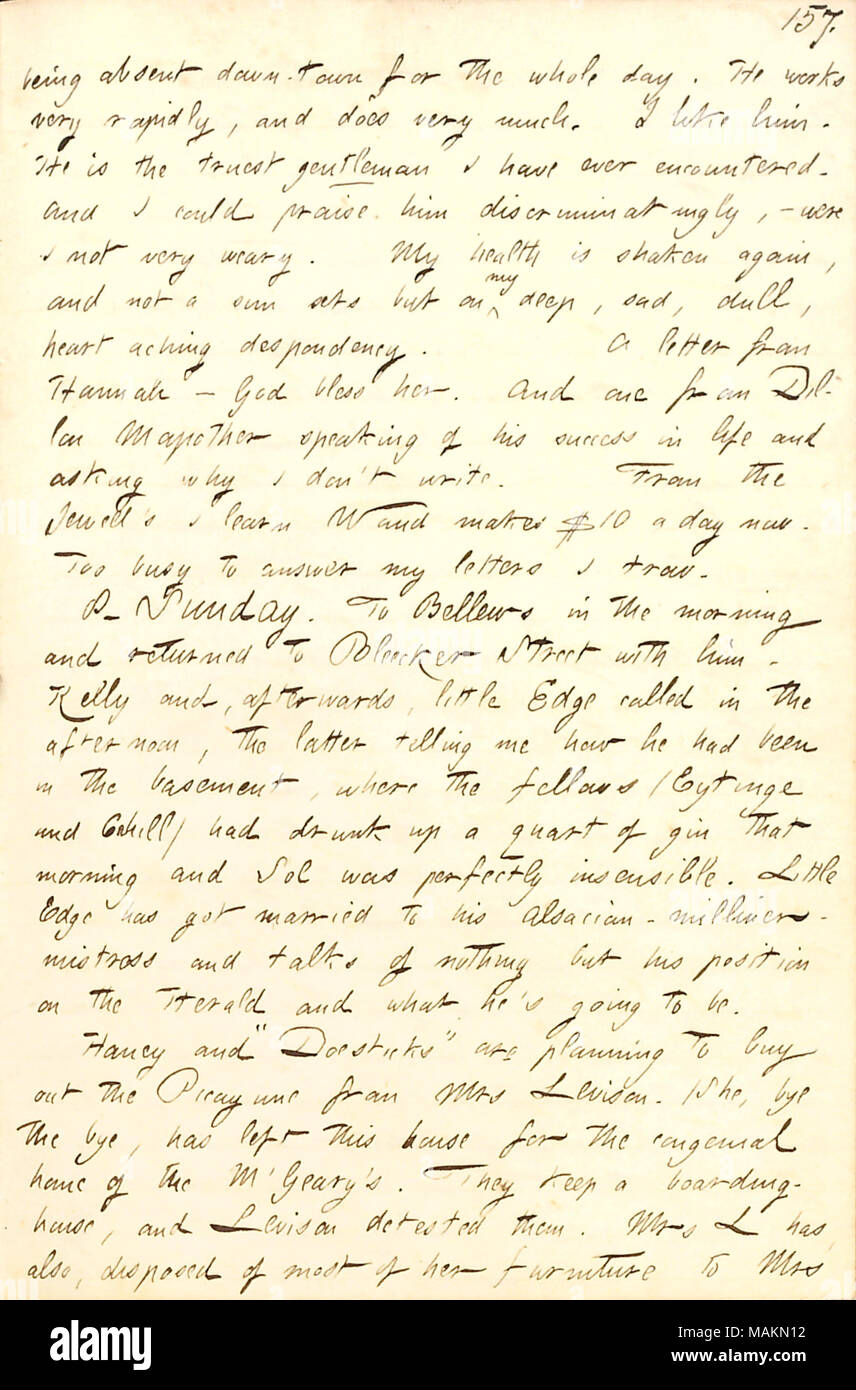 157.
being absent down-town for the whole day. He works
very rapidly, and does very much. I like him.
He is the truest gentleman I have ever encountered.
and I could praise him discriminatingly, – were
I not very weary. My health is shaken again,
and not a sun sets but on my deep, sad, dull,
heart aching despondency. A letter from
Hannah — God bless her. And one from Dil-
lon Mapother speaking of his success in life and
asking why I don't write. From the
Jewell's I learn Wand makes $10 a day now.
Too busy to answer my letters I trow.
8. Sunday. To Bellews in the morning
and returned to Bleecker Street with him.
Kelly and, afterwards, little Edge called in the
afternoon, the latter telling me how he had been
in the basement, where the fellows (Eytinge
and Cahill) had drunk up a quart of gin that
morning and Sol was perfectly insensible. Little
Edge has got married to his Alsacian-milliner-
mistress and talks of nothing but his position
on the Herald and what he's going to be.
Haney and "Doesticks" are planning to buy
out the Picayune from Mrs Levison. (She, bye
the bye, has left this house for the congenial
home of the M'Geary's. They keep a boarding-
house, and Levison detested them. Mrs L has,
also, disposed of most of her furniture to Mrs
alamy
Image ID: MAKN12
www.alamy.com